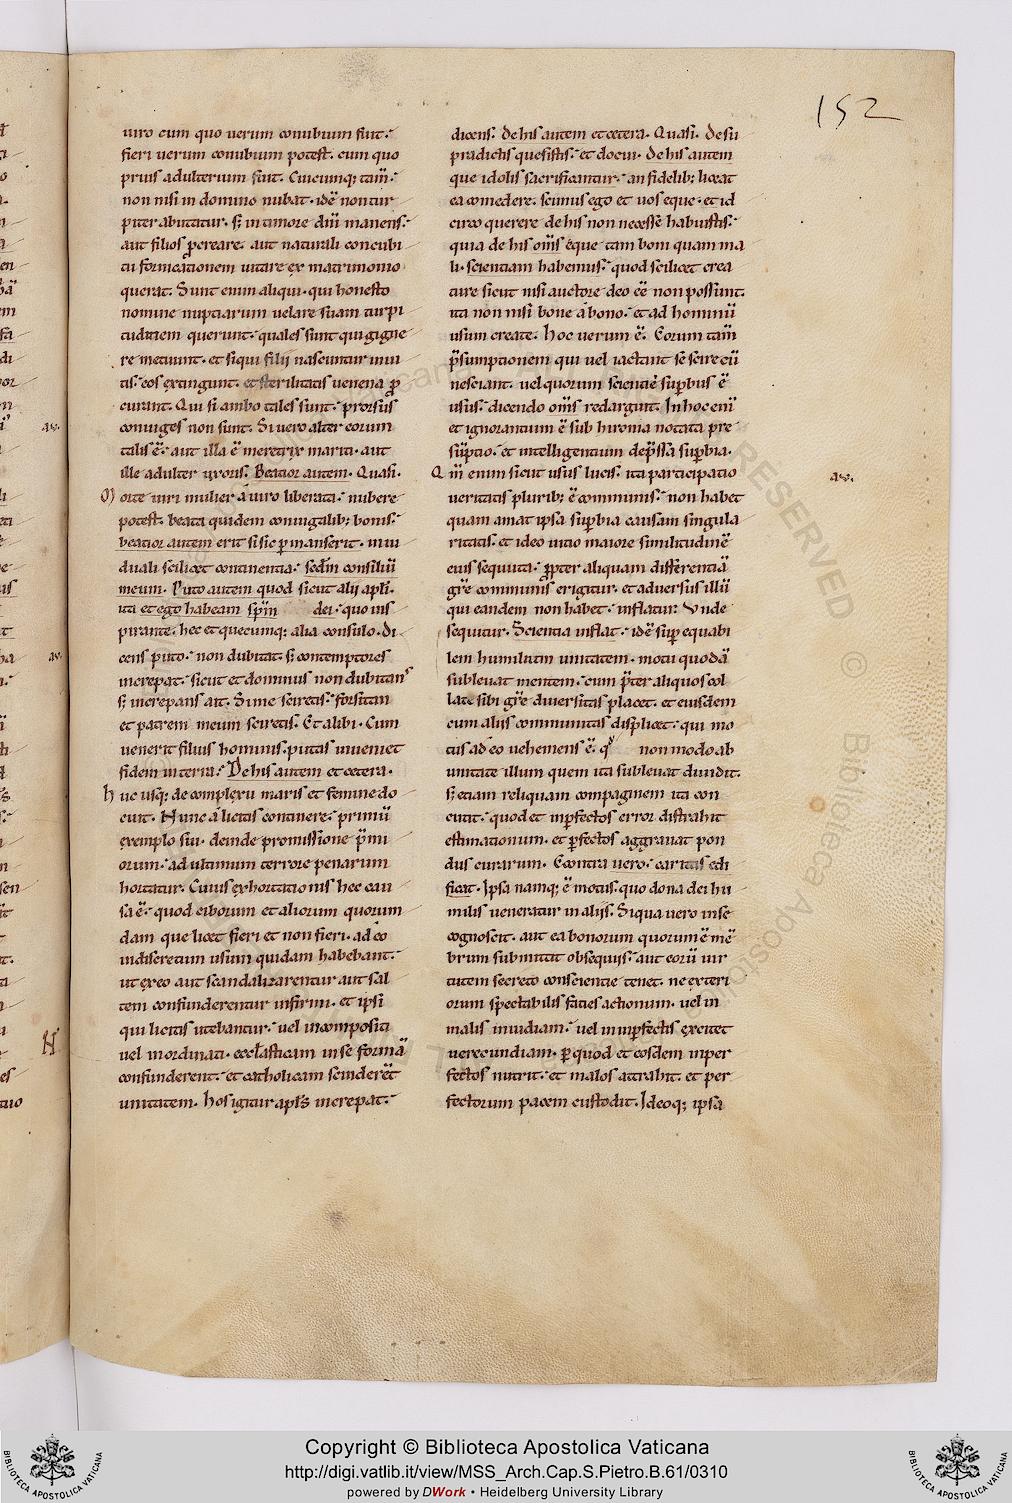 152
uiro cum quo uerum conubium fiut.
fieri uerum conubium potest. cum quo
prius adulterium fiut. Cuicumq; tam̄.
non nisi in domino nubat. idē non tur
piter abutatur. s; in timore dn̄i manens.
aut filios percreare. aut naturali concubi
tu fornicationem uitare ex matrimonio
querat. Sunt enim aliqui. qui honesto
nomine nuptiarum uelare suam turpi
tudinem querunt. quales sunt qui gigne
re metuunt. et siqui filij nascuntur inui
tis. eos extingunt. et sterilitatis uenena p
curant. Qui si ambo tales sunt. prorsus
coniuges non sunt. Si uero alter eorum
talis ē. aut illa ē meretrix mariti. aut
ille adulter uxoris. Beatior autem. Quasi.
Morte uiri mulier a uiro liberata. nubere
potest. beata quidem coniugalib; bonis.
beatior autem erit si sic pmanserit. in ui
duali scilicet continentia. sedm̄ consiliū
meum. Puto autem quod sicut alij apl̄i.
ita et ego habeam spm̄ dei. quo ins
pirante. hec et quecumq; alia consulo. Di
cens puto. non dubitat. s; contemptores
increpat. sicut et dominus non dubitans
s; increpans ait. Si me sciretis. forsitan
et patrem meum sciretis. Et alibi. Cum
uenerit filius hominis. putas inueniet
fidem in terra. De his autem et cetera.
Huc usq; de complexu maris et femine do
cuit. Nunc a licitis continere. primū
exemplo sui. deinde promissione p̄mi
orum. ad ultimum terrore penarum
hortatur. Cuius exhortationis hec cau
sa ē. quod ciborum et aliorum quorum
dam que licet fieri et non fieri. ad eo
indiscretum usum quidam habebant.
ut ex eo aut scandalizarentur aut sal
tem confunderentur infirmi. et ipsi
qui licitis utebantur. uel incompositi
uel inordinati. eccl̄asticam in se formā
confunderent. et catholicam scinderēt
unitatem. hos igitur apl̄s increpat.
dicens. de his autem et cetera. Quasi. de su
pradictis quesistis. et docui. de his autem
que idolis sacrificantur. an fidelib; liceat
ea comedere. scimus ego et uos eque. et id
circo querere de his non necesse habuistis.
quia de his om̄s eque tam boni quam ma
li. scientiam habemus. quod scilicet crea
ture sicut nisi auctore deo eē non possunt.
ita non nisi bone a bono. et ad hominū
usum create. hoc uerum ē. Eorum tam̄
p̄sumptionem qui uel iactant se scire cū
nesciant. uel quorum scientie supbus ē
usus. dicendo om̄s redargunt. In hoc eni
et ignorantium ē sub hironia notata pre
suptio. et intelligentium dep̄ssa supbia.
Qm̄ enim sicut usus lucis. ita participatio
ueritatis plurib; ē communis. non habet
quam amat ipsa supbia causam singula
ritatis. et ideo initio maiore similitudinē
eius sequuta. ppter aliquam differentiā
gr̄e communis erigitur. et aduersus illū
qui eandem non habet. inflatur. Unde
sequitur. Scientia inflat. idē sup equabi
lem humilium unitatem. motu quodā
subleuat mentem. cum pter aliquos col
late sibi gr̄e diuersitas placet. et eiusdem
cum alijs communitas displicet. qui mo
tus ad eo uehemens ē. q non modo ab
unitate illum quem ita subleuat diuidit.
s; etiam reliquam compaginem ita con
cutit. quod et inperfectos error distrahit
estimationum. et perfectos aggrauat pon
dus curarum. Econtra uero. caritas edi
ficat. Ipsa namq; ē motus. quo dona dei hu
milis ueneratur in alijs. Siqua uero in se
cognoscit. aut ea bonorum quorum ē mē
brum submittit obsequijs. aut eorū uir
tutem secreto conscientie tenet. ne exteri
orum spectabilis facies actionum. uel in
malis inuidiam. uel in inpfectis excitet
uerecundiam. p quod et eosdem inper
fectos nutrit. et malos attrahit. et per
fectorum pacem custodit. Ideoq; ipsa
Copyright © Biblioteca Apostolica Vaticana
http://digi.vatlib.it/view/MSS_Arch.Cap.S.Pietro.B.61/0310
powered by DWork • Heidelberg University Library